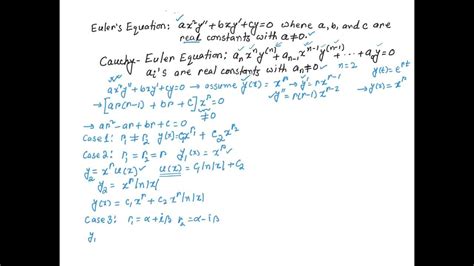 Euler's Equation: ax²y″+bxy′+cy=0 where a, b, and c are
real constants with a≠0.
Cauchy-Euler Equation: aₙxⁿy⁽ⁿ⁾+aₙ₋₁xⁿ⁻¹y⁽ⁿ⁻¹⁾+⋯+a₀y=0
aᵢ's are real constants with aₙ≠0. n=2 y(t)=e^{rt}
ax²y″+bxy′+cy=0 → assume y(x)=x^r → y′=r x^{r-1} → y(x)=x^r
y″=r(r-1)x^{r-2}
→ [ar(r-1)+br+c]x^r=0
≠0
→ ar²-ar+br+c=0
Case 1: r₁≠r₂ y(x)=c₁x^{r₁}+c₂x^{r₂}
Case 2: r₁=r₂ y₁(x)=x^r
y₂=x^r u(x) u(x)=c₁ln|x|+c₂
y₂=x^r ln|x|
y(x)=c₁x^r+c₂x^r ln|x|
Case 3: r₁=α+iβ r₂=α-iβ
y₁